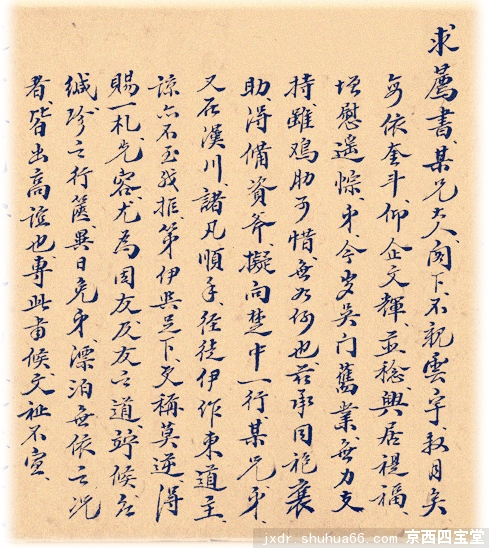 求薦書、某兄大人閣下、不親雲宇、数月矣、
每依奎斗、仰企文輝、並稔興居禔福、
增慰遥悰、弟今岁吴门舊業、無力支
持、雖鸡肋可惜、無如何也、兹承同袍襄
助、得備資斧、擬向楚中一行、某兄弟、
又在漢川、諸凡順手、径徒伊作東道主
諒亦不至我拒、第伊與足下、更稱莫逆得
賜一札先容、尤為因友及友之道、竚候、左
緘珍之行篋、異日免弟漂泊無依之况
者、皆出高誼也、專此、候文祉不宣、
jxdr.shuhua66.com 京西四宝堂